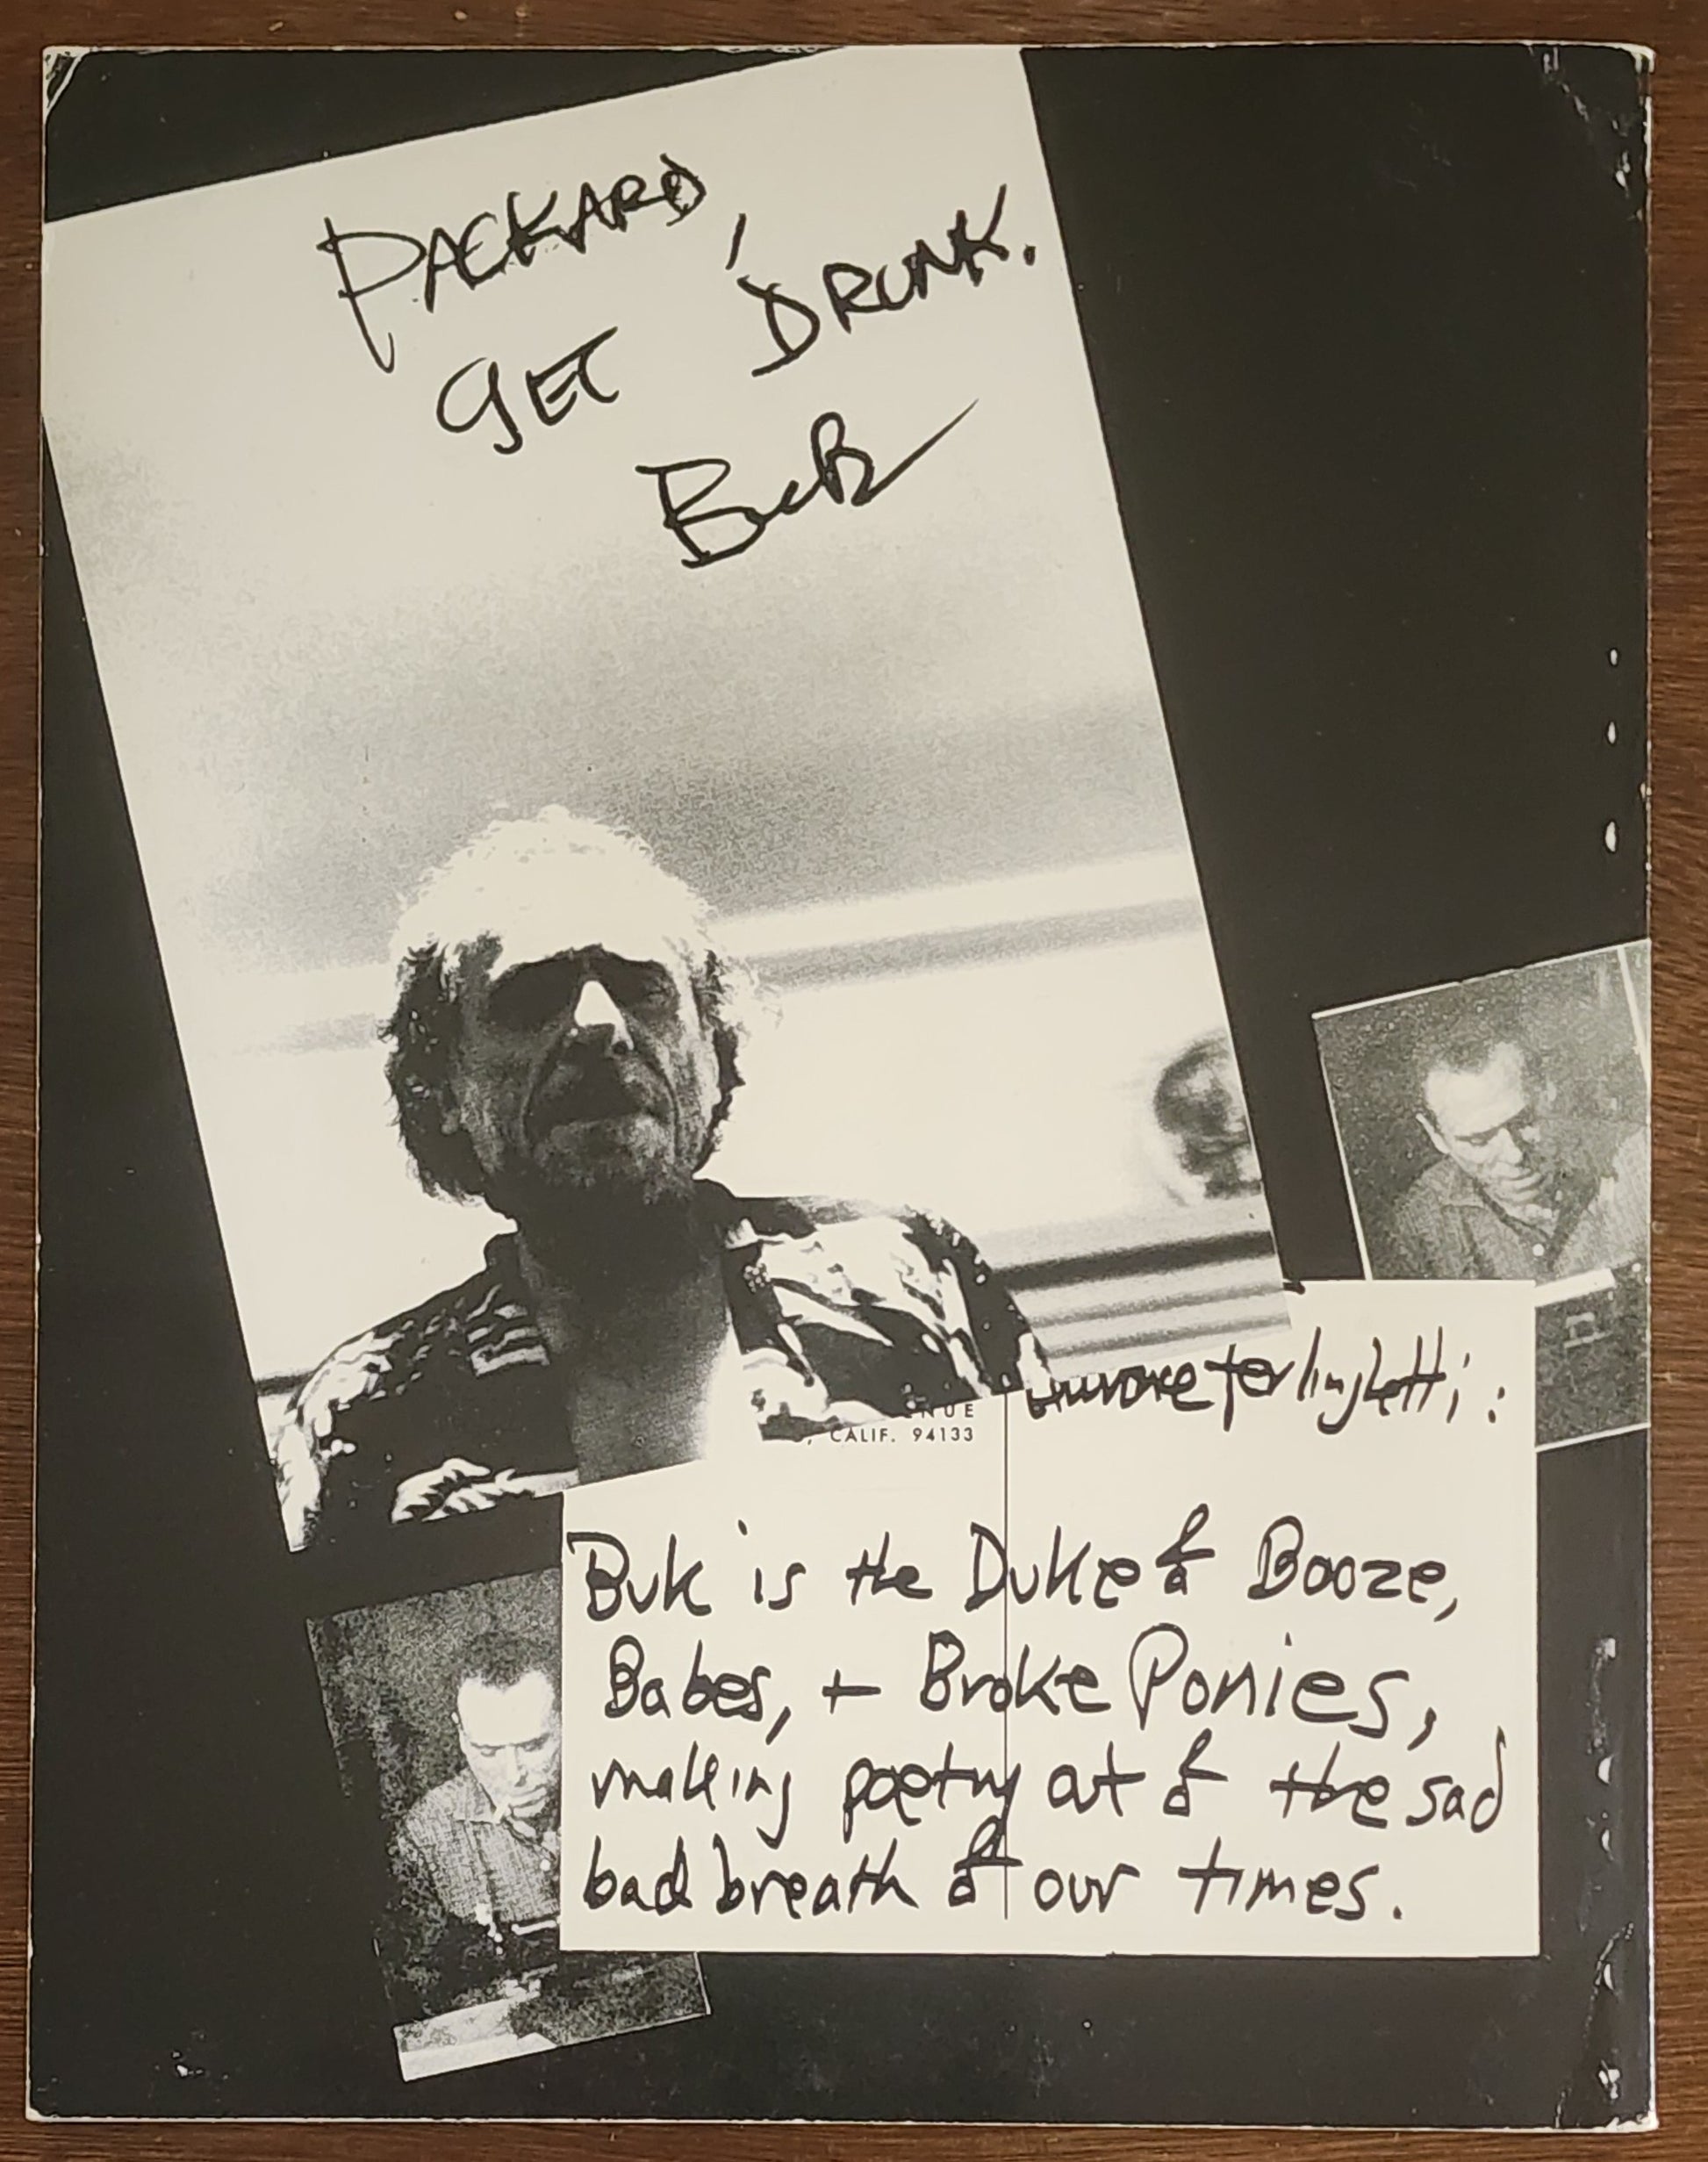 PACKARD,
GET DRUNK.
Buk
Ferlinghetti:
NUE
CALIF. 94133
Buk is the Duke of Booze,
Babes, + Broke Ponies,
making poetry out of the sad
bad breath of our times.